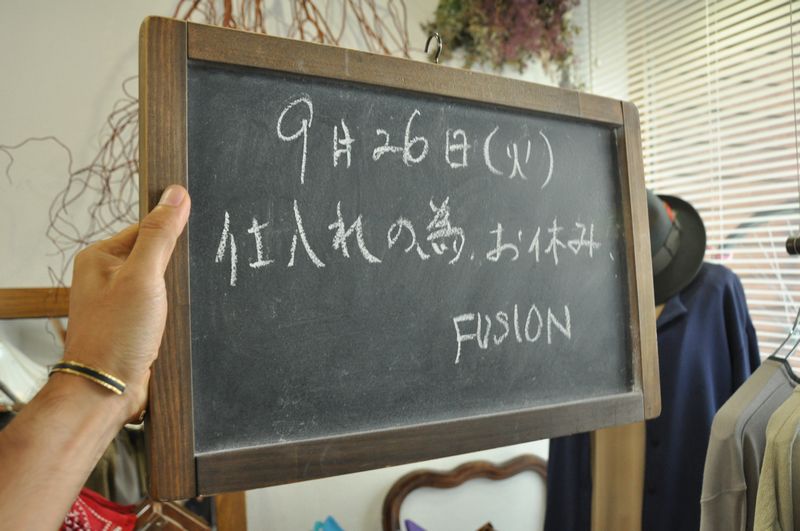 9月26日(火)
仕入れの為、お休み、
FUSION